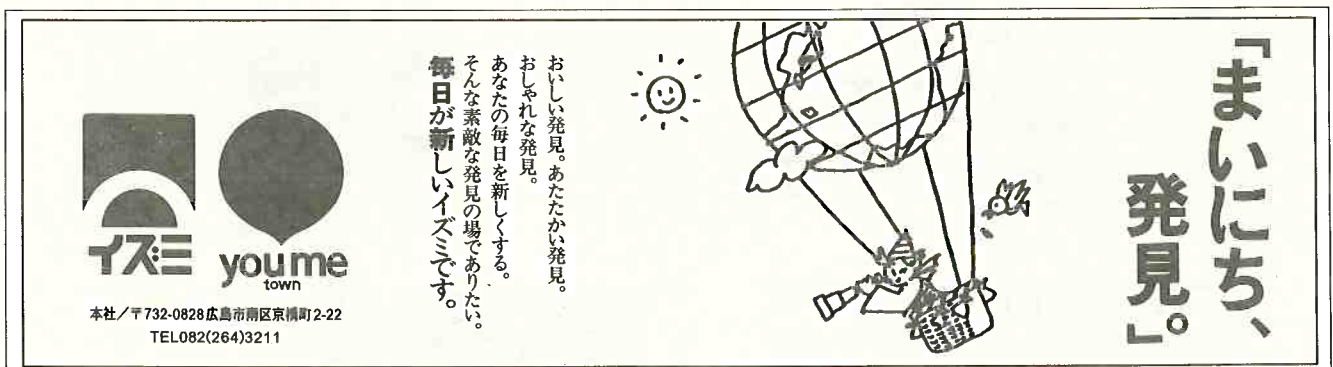 「まいにち、
発見。」
おいしい発見。あたたかい発見。
おしゃれな発見。
あなたの毎日を新しくする。
そんな素敵な発見の場でありたい。
毎日が新しいイズミです。
イズミ
youme
town
本社／〒732-0828広島市南区京橋町2-22
TEL082(264)3211